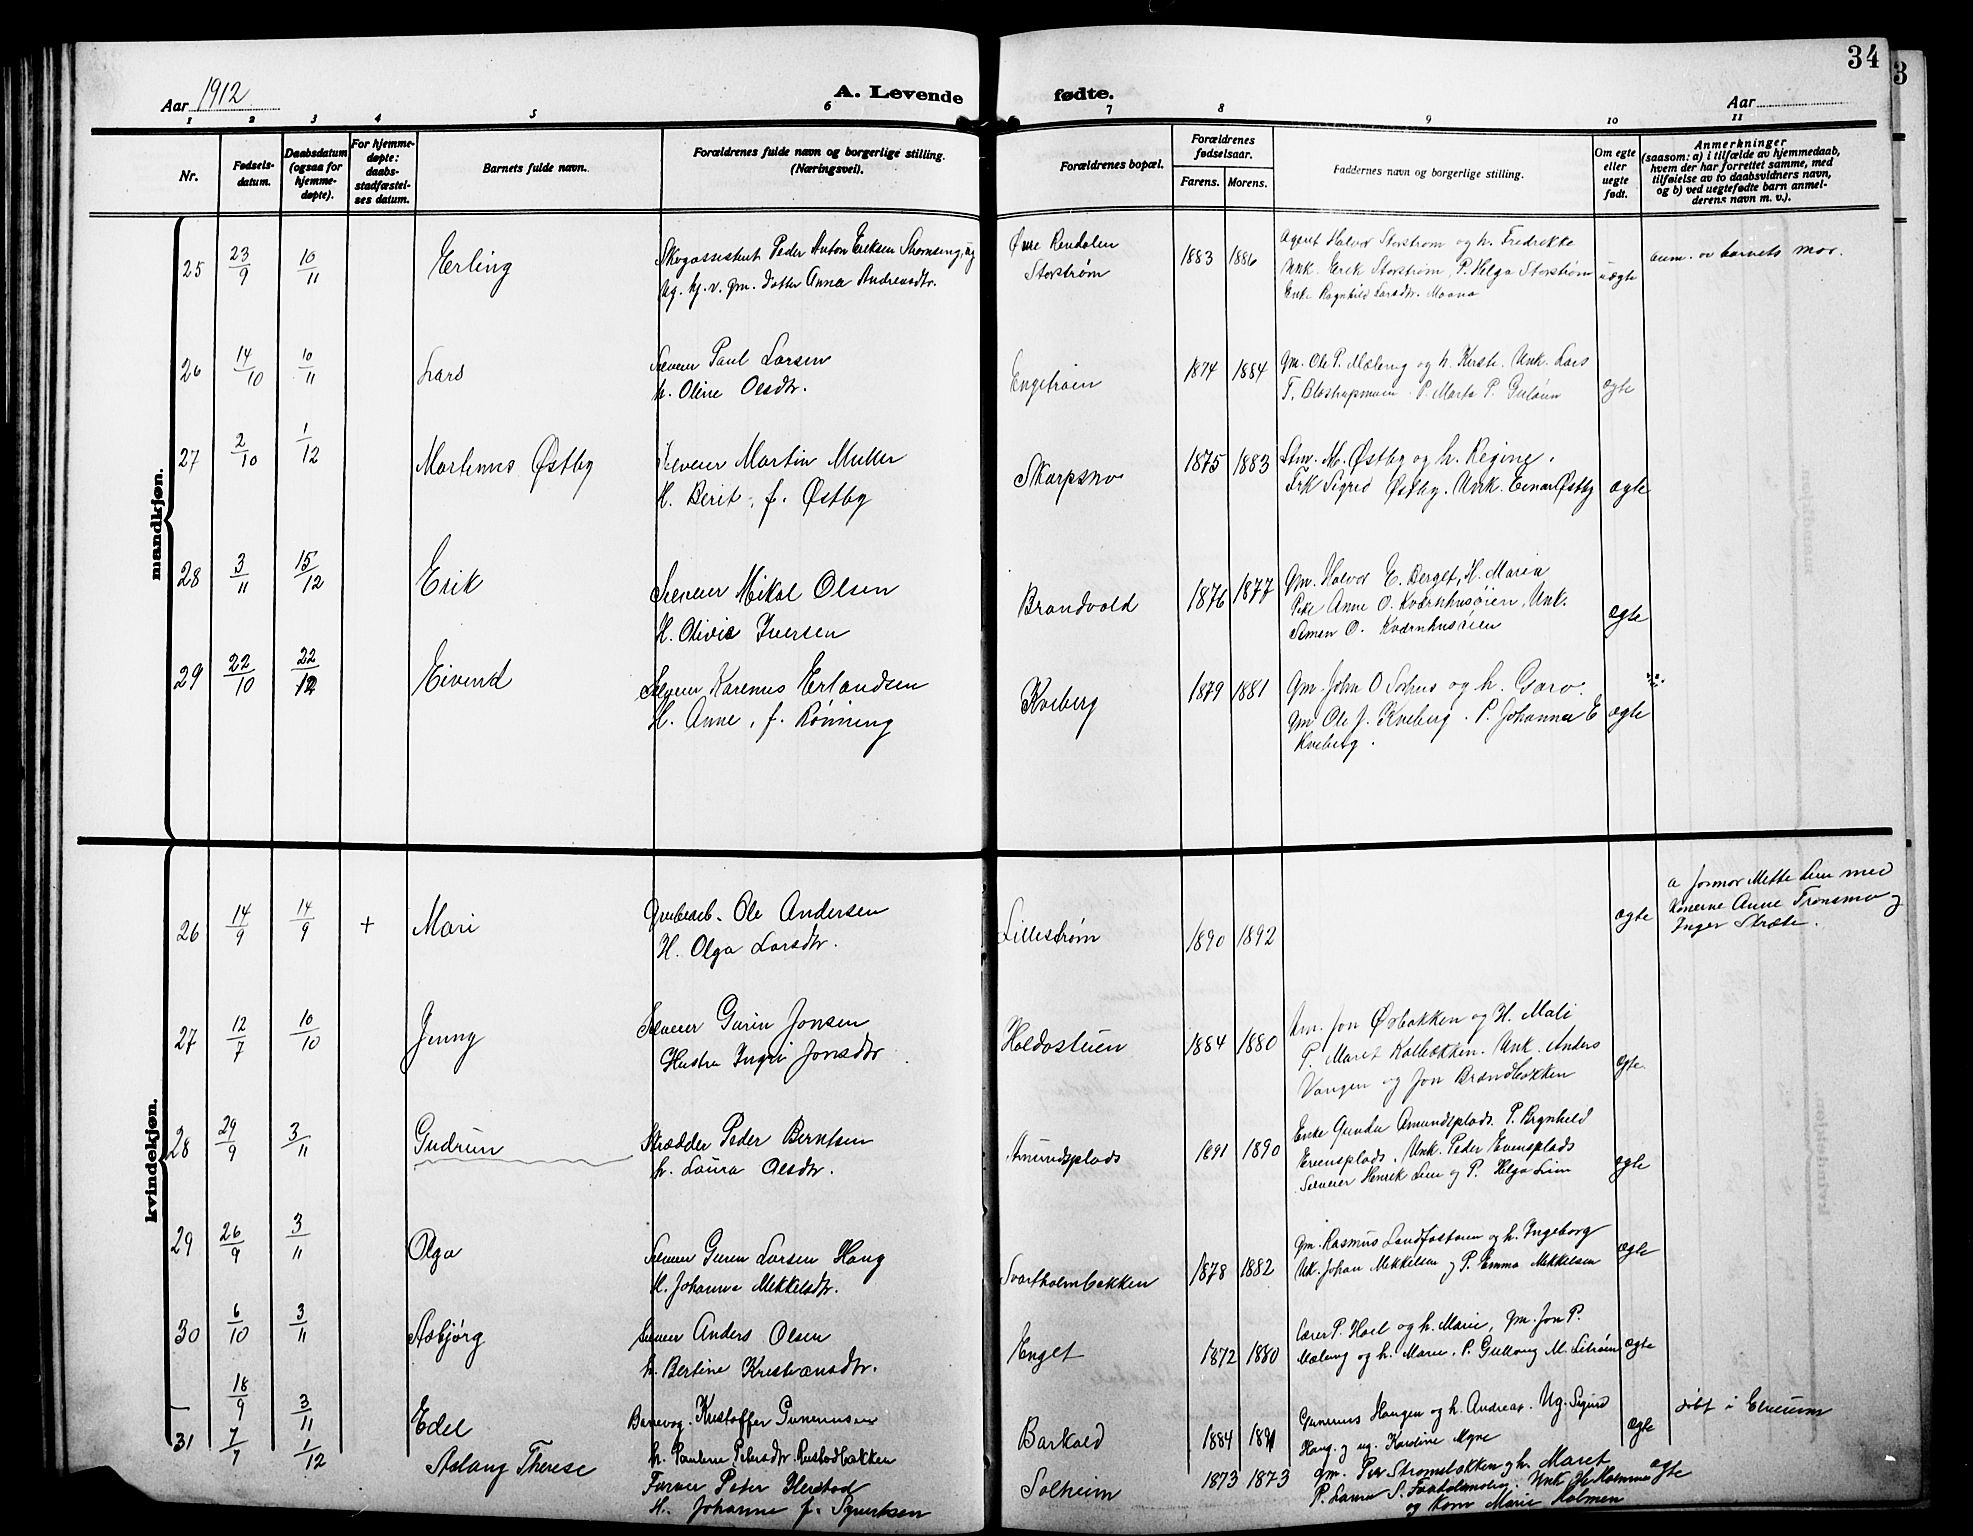 34
3
Aar 1912
A. Levende fødte.
Aar
1 2 3 4 5 6 7 8 9 10 11
Nr.
Fødsels-
datum.
Daabsdatum
(ogsaa for
hjemme-
døpte).
For hjemme-
døpte:
daabs-
stadfæstel-
ses datum.
Barnets fulde navn.
Forældrenes fulde navn og borgerlige stilling.
(Næringsvei).
Forældrenes bopæl.
Forældrenes
fødselsaar.
Farens. Morens.
Faddernes navn og borgerlige stilling.
Om egte
eller
uegte
født.
Anmerkninger
(saasom: a) i tilfælde av hjemmedaab,
hvem der har forrettet samme, med
tilføielse av to daabsvidners navn,
og b) ved uegtefødte barn anmel-
derens navn m. v.).
mandkjøn.
25 23/9 10/11 Erling
Skogassistent Peder Anton Eriksen Strømseng, ug
ug. hj. v. gm. datter Anna Andreasdtr.
Øvre Rendalen
Storstrøm
1883 1886
Agent Halvor Storstrøm og h. Fredrikke
Unk. Erik Storstrøm, P. Helga Storstrøm
Enke Ragnhild Larsdtr. Moana
uægte
anm. av barnets mor.
26 14/10 10/11 Lars
Selveier Paul Larsen
h. Oline Olsdtr.
1874 1884
Gm. Ole P. Mæleng og h. Kersti. Unk. Lars
T. P. Marta P.
ægte
27 2/10 1/12 Martinus Østby
Selveier Martin Muller
H. Berit, f. Østby
Skarpsno
1875 1883
Stm. M. Østby og h. Regine.
Frk Sigrid Østby. Unk. Einar Østby
ægte
28 3/11 15/12 Erik
Selveier Mikal Olsen
H. Olivie Iversen
Brandvold
1876 1877
Gm. Halvor E. Berget, H. Maria
Pike Anne O. Kværnhusøien, Unk.
Simen O. Kværnhusøien
ægte
29 22/10 22/12 Eivind
Selveier Karenus Erlandsen
H. Anne, f. Rønning
Kveberg
1879 1881
Gm. John O og h. Garo.
Gm Ole J. Kveberg. P. Johanna E
Kveberg.
ægte
kvindekjøn.
26 14/9 14/9 + Mari
Grubearb. Ole Andersen
H. Olga Larsdtr.
Lillestrøm
1890 1892
ægte
a farmor Mette Lien med
konerne Anne Tronsmo og
Inger Stræte.
27 12/7 10/10 Jenny
Selveier Jonsen
Hustru Ingri Jonsdtr
Holdostuen
1884 1880
Gm. Jon Øsbakken og H. Mali
P. Maret Kolbækken. Unk. Anders
Vangen og Jon Brændbakken
ægte
28 29/9 3/11 Gudrun
Skrædder Peder Berntsen
h. Laura Olsdtr.
Amundsplads
1891 1890
Enke Gunda Amundsplads. P. Brynhild
Evensplads. Unk. Peder Evensplads
Selveier Henrik Lien og P. Helga Lien
ægte
29 26/9 3/11 Olga
Selveier Larsen Haug
H. Johanna Mikkelsdtr.
Svartholmbakken
1878 1882
Gm. Rasmus og h. Ingeborg
Uk. Johan Mikkelsen og P. Emma Mikkelsen
ægte
30 6/10 3/11 Asbjørg
Selveier Anders Olsen
h. Bertine Kristiansdtr.
Enget
1872 1880
Lærer P. Hoel og h. Marie, Gm. Jon P.
Mæleng og h. Marie. P. Gullaug M.
ægte
— 18/9 3/11 Edel
Banevog. Kristoffer Gunerussen
h. Pauline Petersdtr. Rustadbakken
Barkald
1884 1891
Gunerius Haugen og h. Andrea. Ug. Sigurd
Haug. og ug. Karoline Myre
ægte
døbt i Elverum
31 7/7 1/12 Aslaug Therese
Farver Peter Herstad
H. Johanne f. Syvertsen
Solheim
1873 1873
Gm. Per Strømsbakken og h. Maret
P. Laura S. Unk. Holmen
og Kone Marie Holmen
ægte